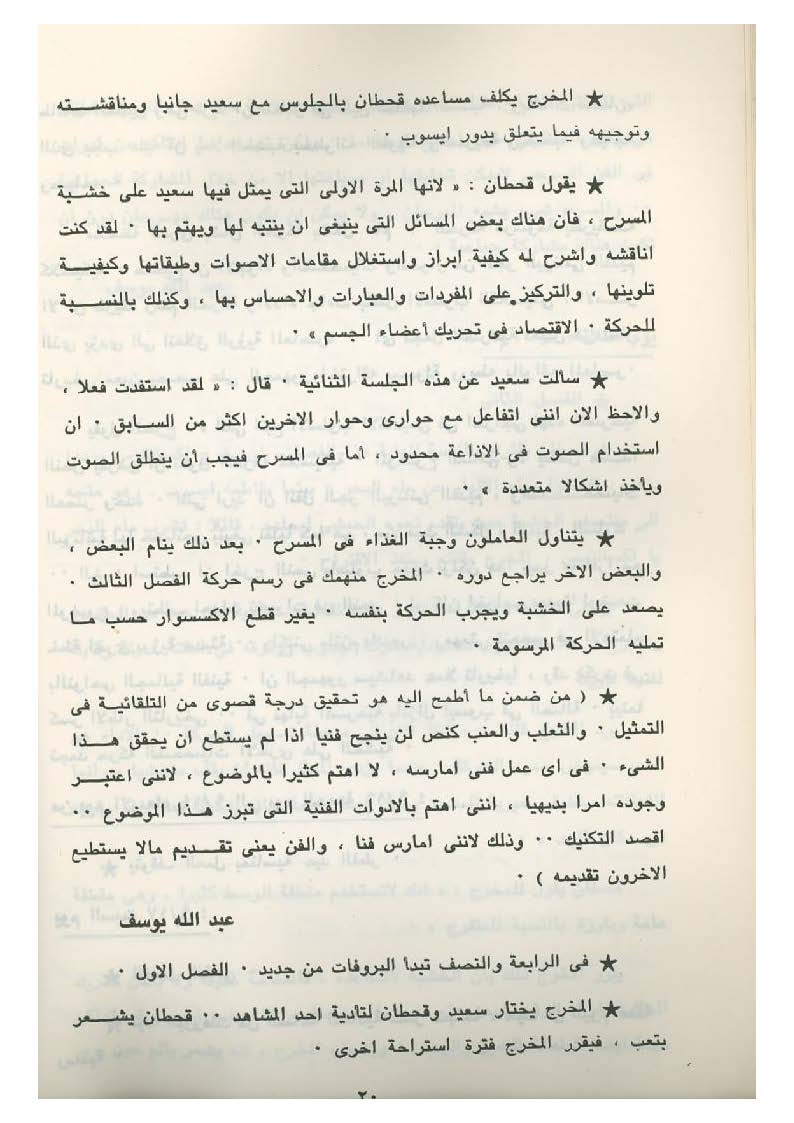 ★ المخرج يكلف مساعده قحطان بالجلوس مع سعيد جانبا ومناقشته
وتوجيهه فيما يتعلق بدور ايسوب ٠
★ يقول قحطان : « لانها المرة الاولى التى يمثل فيها سعيد على خشبة
المسرح ، فان هناك بعض المسائل التى ينبغى ان ينتبه لها ويهتم بها ٠ لقد كنت
اناقشه واشرح له كيفية ابراز واستغلال مقامات الاصوات وطبقاتها وكيفية
تلوينها ، والتركيز على المفردات والعبارات والاحساس بها ، وكذلك بالنسبة
للحركة ٠ الاقتصاد فى تحريك أعضاء الجسم » ٠
★ سألت سعيد عن هذه الجلسة الثنائية ٠ قال : « لقد استفدت فعلا ،
والاحظ الان اننى اتفاعل مع حوارى وحوار الاخرين اكثر من السابق ٠ ان
استخدام الصوت فى الاذاعة محدود ، أما فى المسرح فيجب أن ينطلق الصوت
ويأخذ اشكالا متعددة » ٠
★ يتناول العاملون وجبة الغذاء فى المسرح ٠ بعد ذلك ينام البعض ،
والبعض الاخر يراجع دوره ٠ المخرج منهمك فى رسم حركة الفصل الثالث ٠
يصعد على الخشبة ويجرب الحركة بنفسه ٠ يغير قطع الاكسسوار حسب ما
تمليه الحركة المرسومة ٠
★ ( من ضمن ما أطمح اليه هو تحقيق درجة قصوى من التلقائية فى
التمثيل ٠ والثعلب والعنب كنص لن ينجح فنيا اذا لم يستطع ان يحقق هذا
الشىء ٠ فى اى عمل فنى امارسه ، لا اهتم كثيرا بالموضوع ، لاننى اعتبر
وجوده امرا بديهيا ، اننى اهتم بالادوات الفنية التى تبرز هذا الموضوع ٠٠
اقصد التكنيك ٠٠ وذلك لاننى امارس فنا ، والفن يعنى تقديم مالا يستطيع
الاخرون تقديمه ) ٠
عبد الله يوسف
★ فى الرابعة والنصف تبدأ البروفات من جديد ٠ الفصل الاول ٠
★ المخرج يختار سعيد وقحطان لتأدية احد المشاهد ٠٠ قحطان يشعر
بتعب ، فيقرر المخرج فترة استراحة اخرى ٠
٢٠